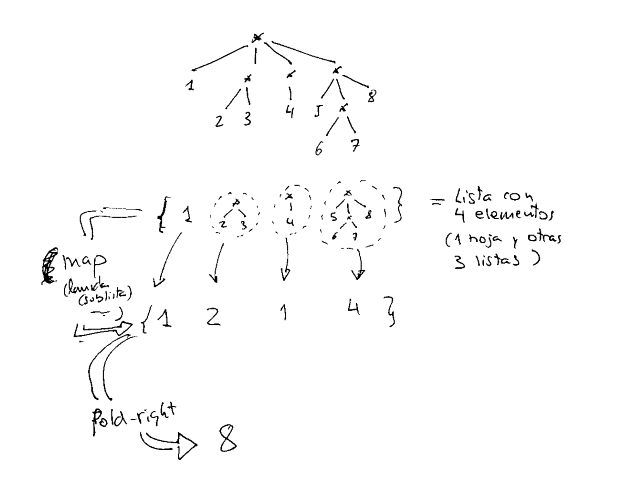 *
1 * * *
2 3 4 5 * 8
6 7
{ 1 * * * }
2 3 4 5 * 8
6 7
= Lista con
4 elementos
(1 hoja y otras
3 listas)
map
(lambda
(sublista)
—)
{ 1 2 1 4 }
fold-right
8